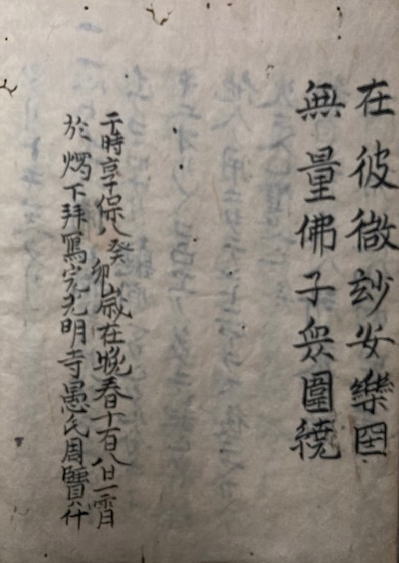 在彼微妙安樂国
無量佛子衆圍繞
于時享保八癸卯歳在晩春十有八日一霄
於燭下拝寫完光明寺愚氏周